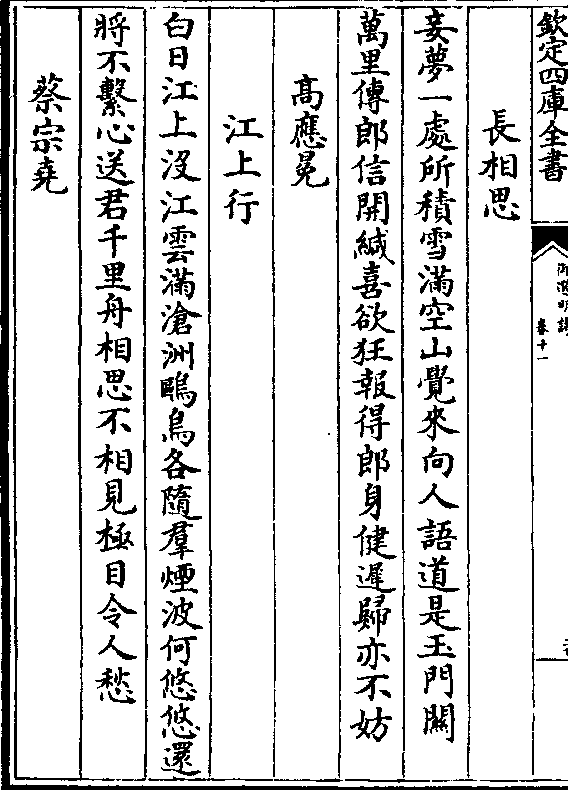 欽定四庫全書
御選明詩
卷十一
長相思
妾夢一處所積雪滿空山覺來向人語道是玉門關
萬里傳郎信開緘喜欲狂報得郎身健遲歸亦不妨
高應冕
江上行
白日江上沒江雲滿滄洲鷗鳥各隨羣煙波何悠悠還
將不繫心送君千里舟相思不相見極目令人愁
蔡宗堯